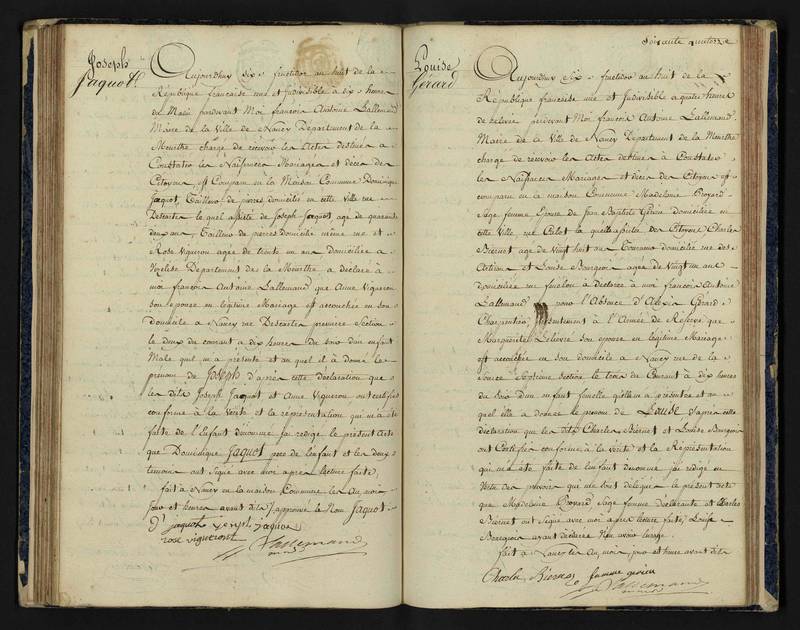 Joseph
Jaquot.
Aujourdhuy Six fructidor an huit de la
République française une et Indivisible à dix heures
du Matin pardevant Moi françois Antoine Lallemand
Maire de la Ville de Nancy Département de la
Meurthe chargé de recevoir les Actes destinés à
Constater les Naissances Mariages et décès des
Citoyens, est Comparu en la Maison Commune Dominique
Jaquot, Tailleur de pierres domicilié en cette Ville rue
Descartes le quel assisté de Joseph Jaquot agé de quarante
deux ans, Tailleur de pierres domicilié même rue et
Rose Vigneron agée de trente un ans domiciliée à
Vezelise Département de la Meurthe a déclaré à
moi françois Antoine Lallemand que Anne Vigneron
son epouse en légitime Mariage est accouchée en son
domicile a Nancy rue Descartes premiere Section
le deux du courant a dix heures du Soir d'un enfant
Male qu'il m'a présenté et au quel il à donné le
prénom de Joseph d'après cette déclaration que
les dits Joseph Jaquot et Anne Vigneron ont certifiés
conforme à la Vérité et la représentation qui m'a été
faite de l'Enfant dénommé j'ai rédigé le présent Acte
que Dominique Jaquot pere de l'enfant et les deux
temoins ont Signé avec moi apres lecture faite
fait à Nancy en la maison Commune les An, mois
Jour et heures avant dits approuvé le Nom Jaquot
D jaquot joseph jaquot
rose vigneront
Lallemand
Soixante quatorze
Louise
Gérard
Aujourdhuy Six fructidor an huit de la
République française une et Indivisible a quatre heures
de relevée pardevant Moi françois Antoine Lallemand
Maire de la Ville de Nancy Département de la Meurthe
chargé de recevoir les Actes destinés à Constater
les Naissances Mariages et décès des Citoyens est
comparu en la maison Commune Madelaine Brovard
Sage femme Epouse de Jean Baptiste domiciliée en
cette Ville rue la quelle assistée des Citoyens Charles
Biernet agé de Vingt huit ans domicilié rue des
et Louise Bourgeois agée de Vingt un ans
domiciliée rue fénélon à déclaré à moi françois Antoine
Lallemand pour l'Absence d'Alexis Gérard
Charpentier, presentement à l'Armée de Réserve que
Marguerite Lelievre son epouse en légitime Mariage
est accouchée en son domicile a Nancy rue de la
Source Septieme section le trois du Courant à dix heures
du Soir d'un enfant femelle qu'elle m'a présentée et au
quel elle a donné le prenom de Louise d'apres cette
déclaration que les dits Charles Biernet et Louise Bourgeois
ont Certifiée conforme à la Vérité et la Réprésentation
qui m'a été faite de l'enfant dénommé j'ai redigé en
Vertu des pouvoirs qui me sont délégués le présent Acte
que Madelaine Brovard Sage femme déclarante et Charles
Biernet ont Signé avec moi apres lecture faite, Louise
Bourgeois ayant déclaré n'en avoir l'usage.
fait à Nancy les An, mois, jour et heure avant dits
Charles Biernet femme
Lallemand